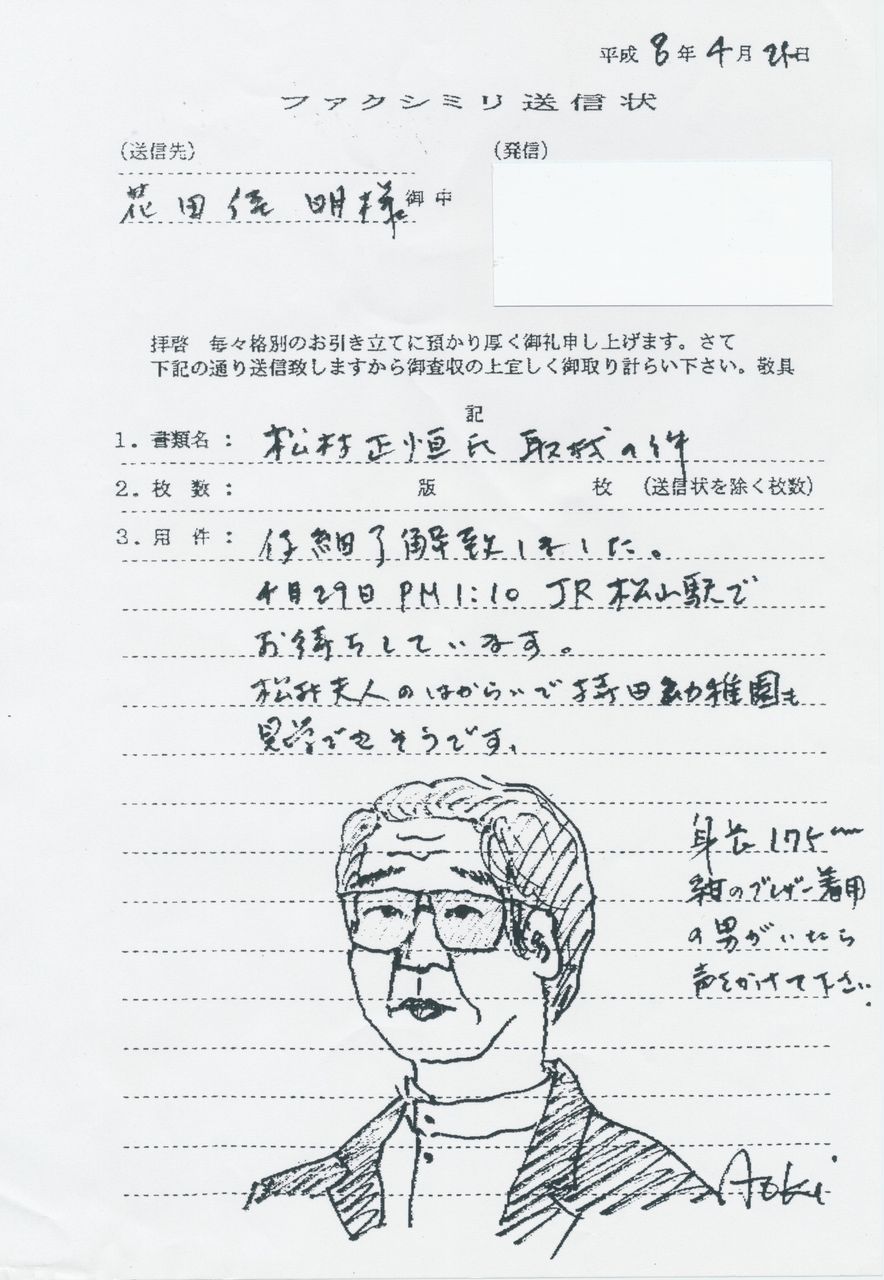 平成 8 年 4 月 25 日
ファクシミリ送信状
(送信先)
(発信)
花田佳明様 御中
拝啓 毎々格別のお引き立てに預かり厚く御礼申し上げます。さて
下記の通り送信致しますから御査収の上宜しく御取り計らい下さい。敬具
記
1. 書類名 : 松村正恒氏 取材の件
2. 枚 数 : 版 枚 (送信状を除く枚数)
3. 用 件 : 仔細了解致しました。
4月29日 PM 1:10 JR 松山駅で
お待ちしています。
松村夫人のはからいで持田幼稚園も
見学できそうです。
身長 175cm
紺のブレザー着用
の男がいたら
声をかけて下さい.
Aoki